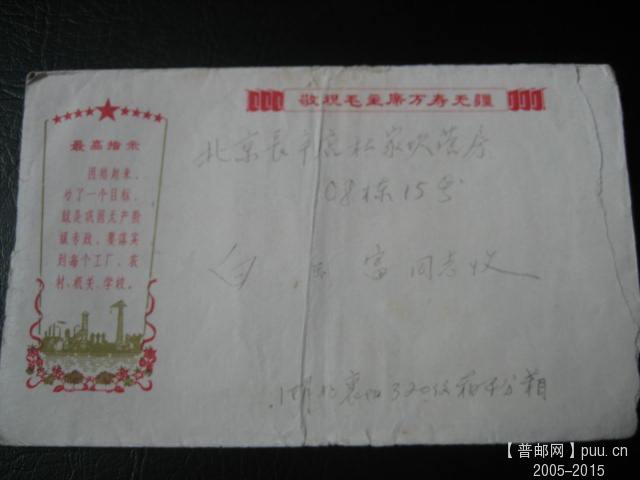 敬祝毛主席万寿无疆
最高指示
团结起来，
为了一个目标，
就是巩固无产阶
级专政，要落实
到每个工厂、农
村、机关、学校。
北京长辛店杜家坎营房
08栋15号
白 富同志收
湖北襄阳320信箱 分箱
【普邮网】puu.cn
2005-2015